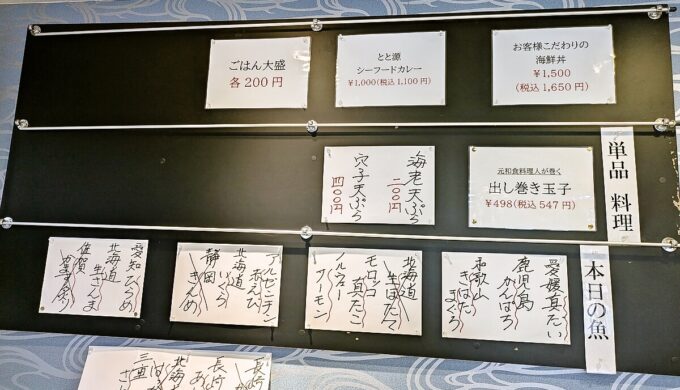 お客様こだわりの
海鮮丼
¥1,500
(税込1,650円)
とと源
シーフードカレー
¥1,000(税込1,100円)
ごはん大盛
各200円
単品 料理
元和食料理人が巻く
出し巻き玉子
¥498(税込547円)
海老天ぷら
二〇〇円
穴子天ぷら
四〇〇円
本日の魚
愛媛真たい
鹿児島
かんぱち
和歌山
きはだ
まぐろ
北海道
生ほたて
モロッコ
真たこ
ノルウェー
サーモン
アルゼンチン
赤えび
北海道
いくら
静岡
きんめ
愛知ひらめ
北海道
生さんま
佐賀
長崎
長崎
北海道
三重